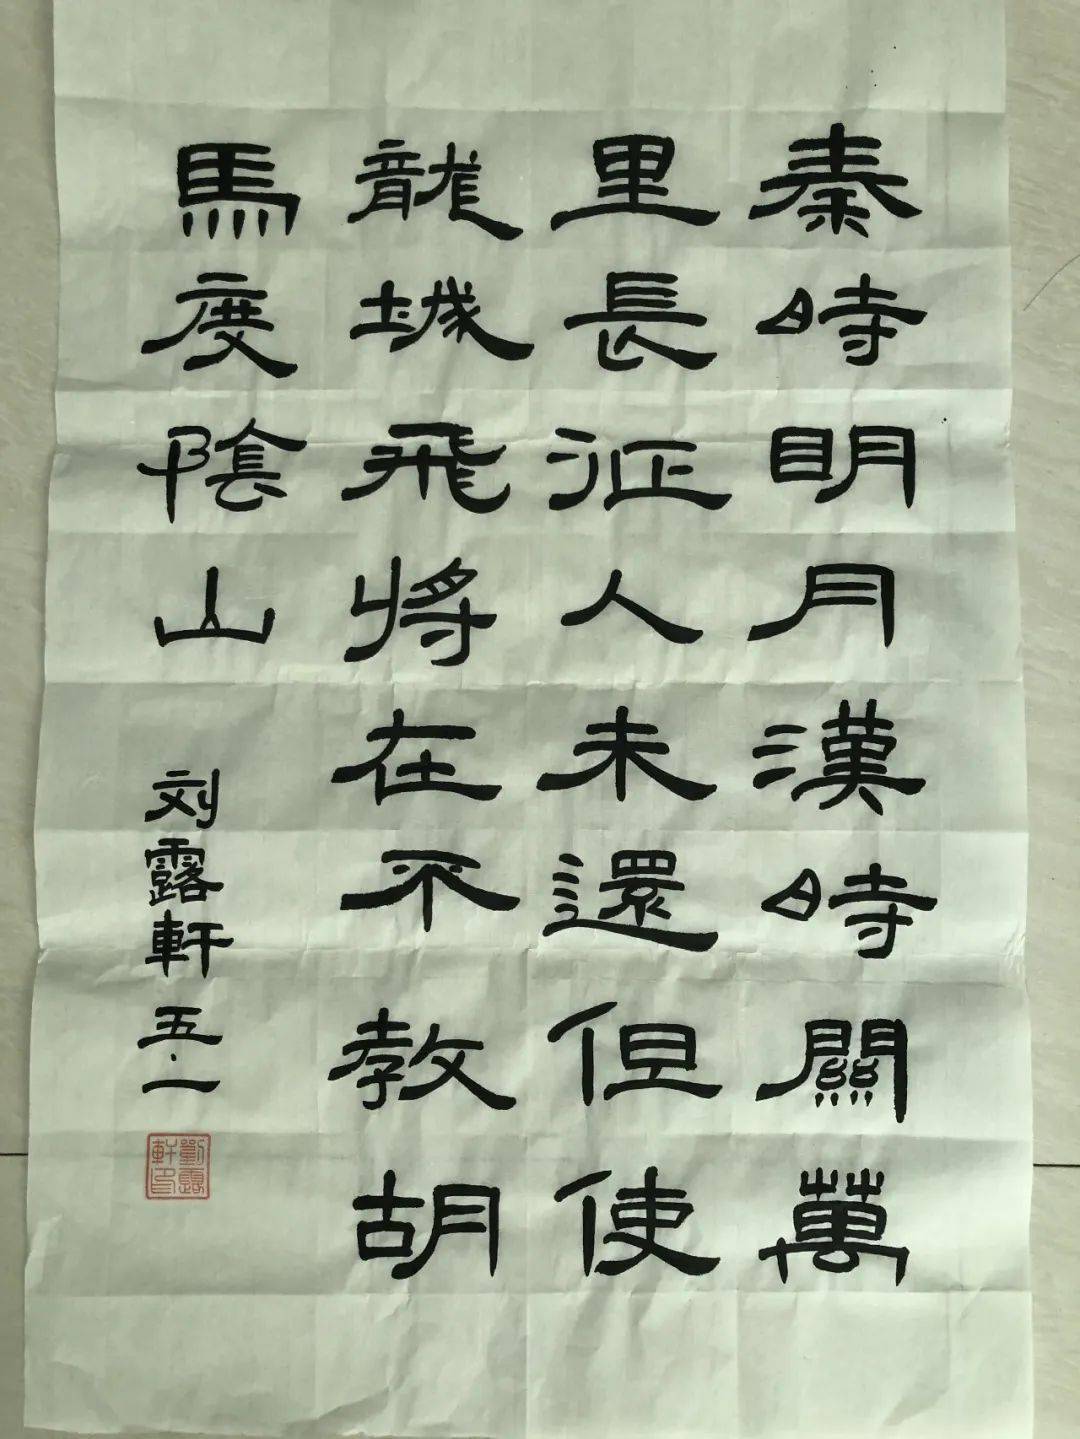 秦時明月漢時關萬
里長征人未還但使
龍城飛將在不教胡
馬度陰山
刘露軒五.一
劉露軒印